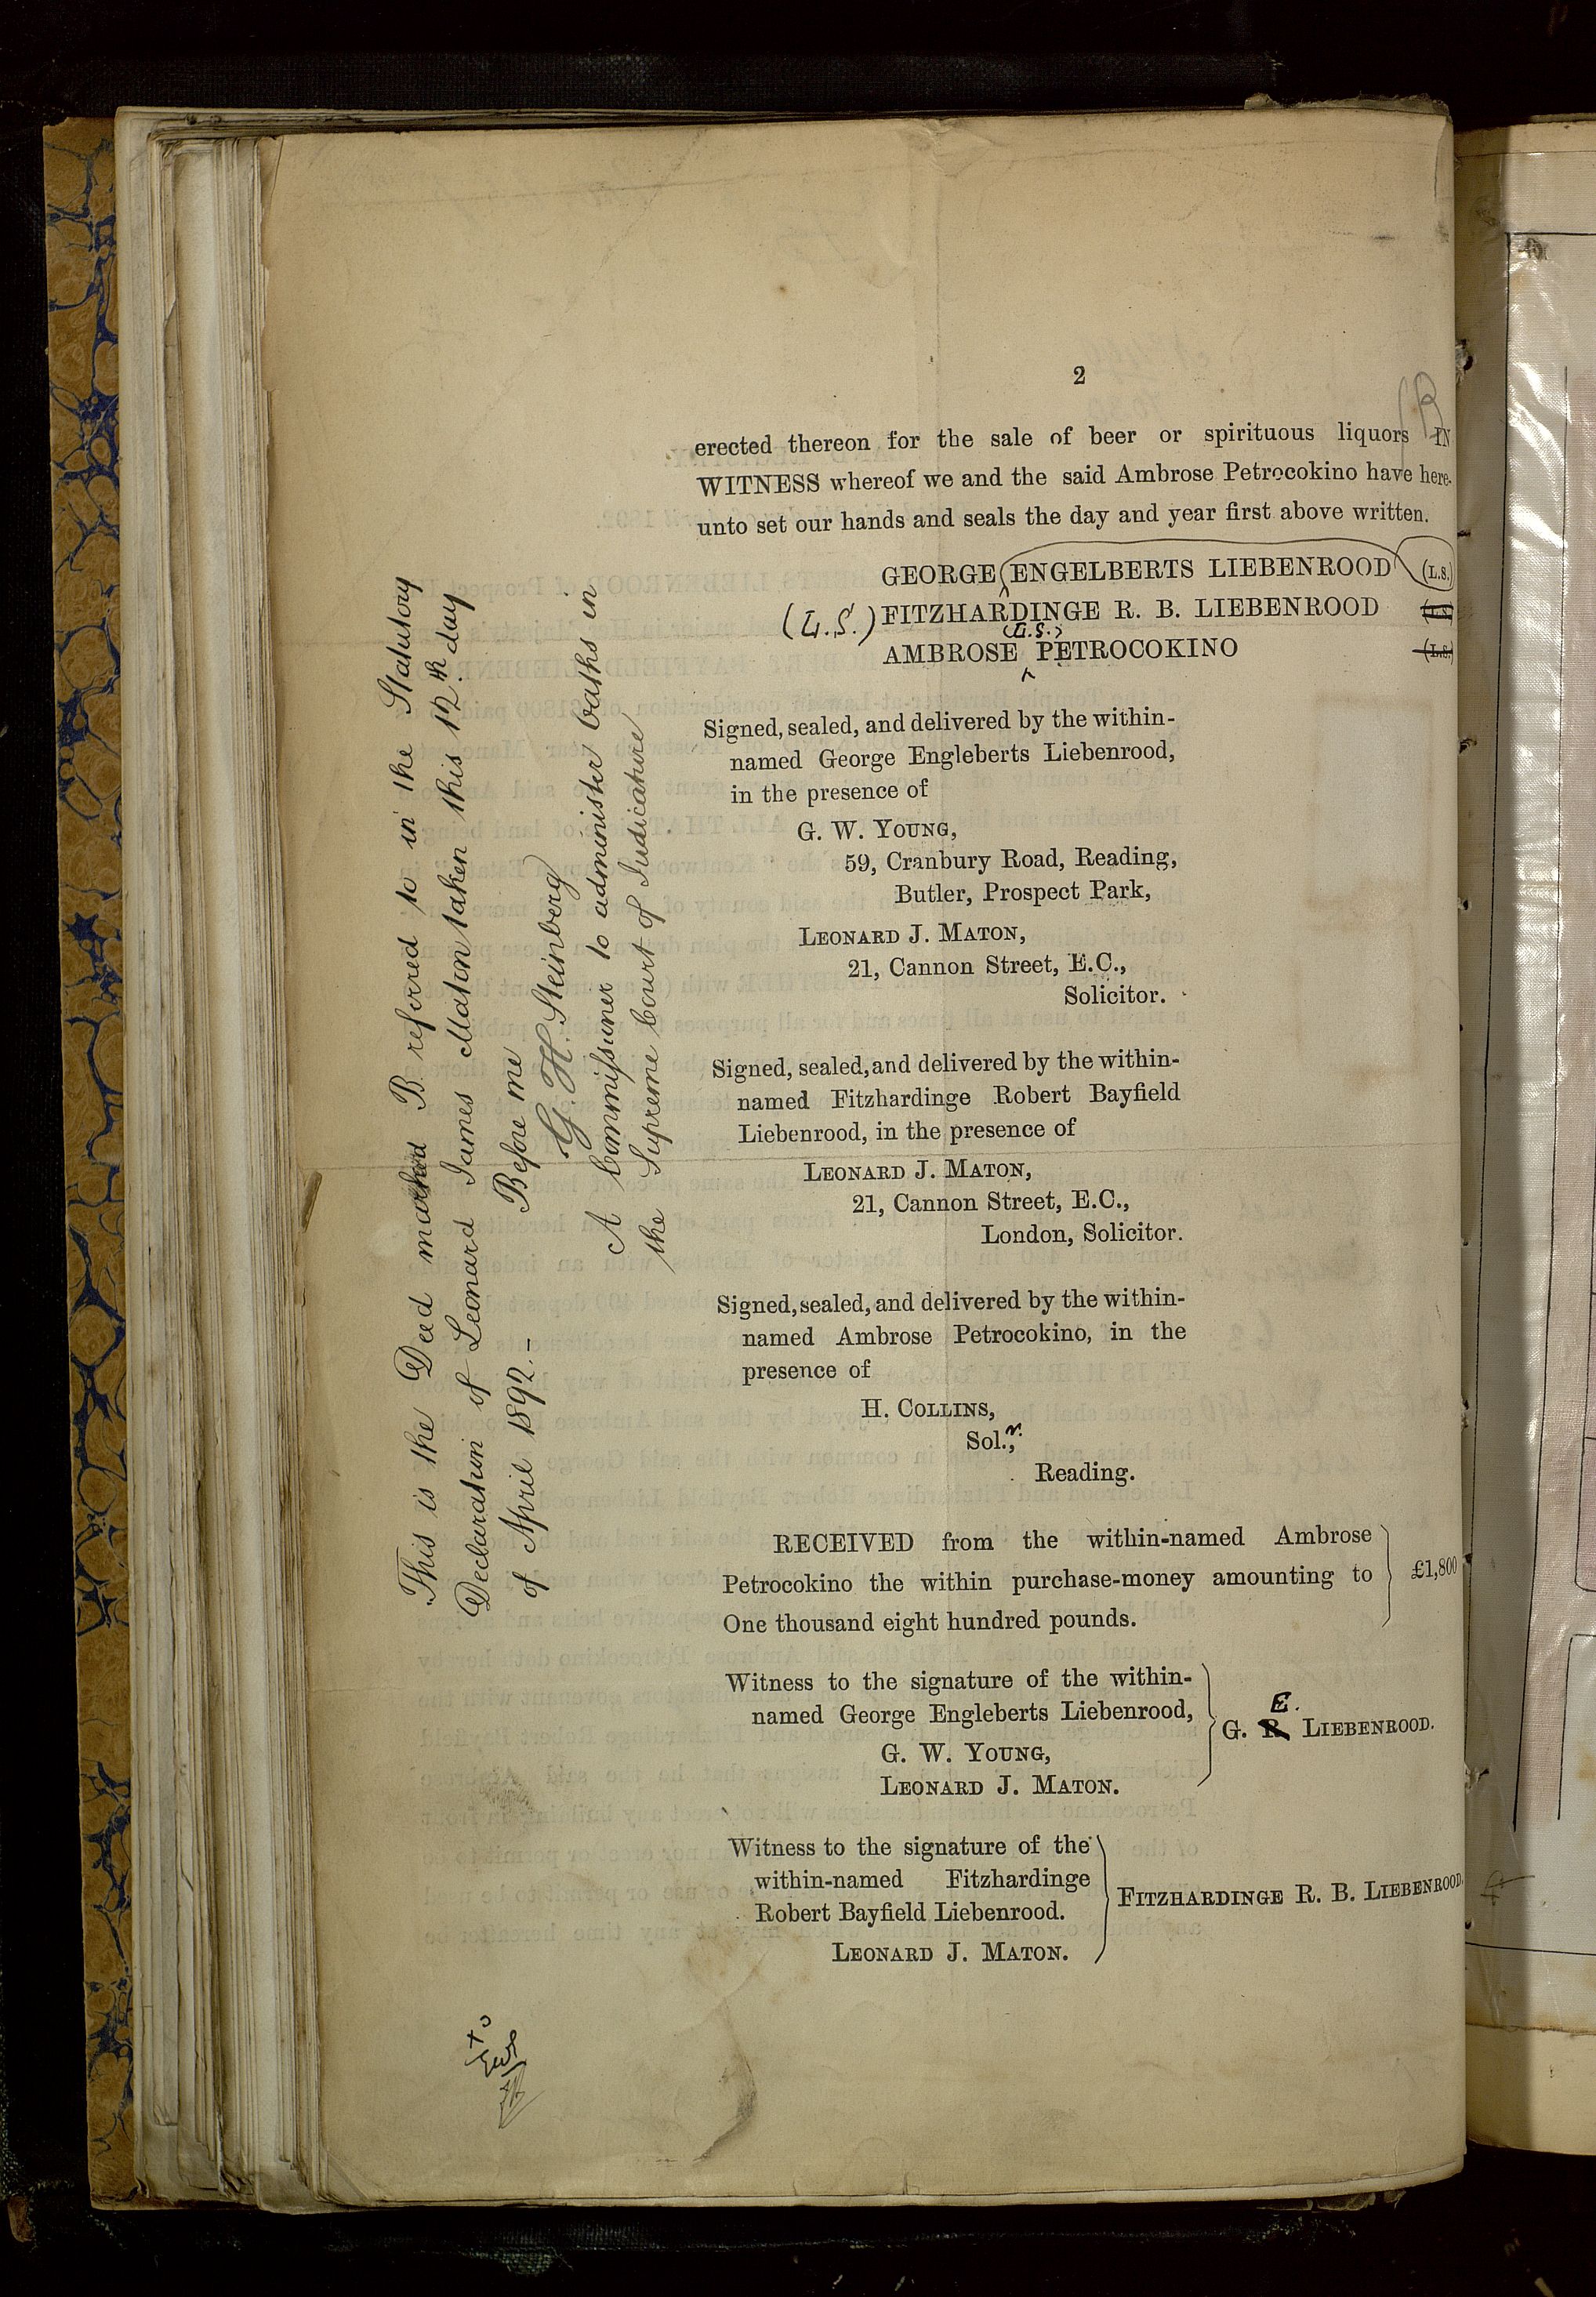 2
erected thereon for the sale of beer or spirituous liquors IN
WITNESS whereof we and the said Ambrose Petrocokino have here-
unto set our hands and seals the day and year first above written.
GEORGE ENGELBERTS LIEBENROOD (L.S.)
(L.S.) FITZHARDINGE R. B. LIEBENROOD (L.S.)
(L.S.)
AMBROSE PETROCOKINO (L.S.)
Signed, sealed, and delivered by the within-
named George Engleberts Liebenrood,
in the presence of
G. W. YOUNG,
59, Cranbury Road, Reading,
Butler, Prospect Park,
LEONARD J. MATON,
21, Cannon Street, E.C.,
Solicitor.
Signed, sealed, and delivered by the within-
named Fitzhardinge Robert Bayfield
Liebenrood, in the presence of
LEONARD J. MATON,
21, Cannon Street, E.C.,
London, Solicitor.
Signed, sealed, and delivered by the within-
named Ambrose Petrocokino, in the
presence of
H. COLLINS,
Sol.r,
Reading.
RECEIVED from the within-named Ambrose
Petrocokino the within purchase-money amounting to
One thousand eight hundred pounds.
£1,800
Witness to the signature of the within-
named George Engleberts Liebenrood,
G. W. YOUNG,
LEONARD J. MATON.
E.
G. R. LIEBENROOD.
Witness to the signature of the
within-named Fitzhardinge
Robert Bayfield Liebenrood.
LEONARD J. MATON.
FITZHARDINGE R. B. LIEBENROOD.
This is the Deed marked B referred to in the Statutory
Declaration of Leonard James Maton taken this 12th day
of April 1892.-
Before me
G. H. Steinberg
A Commissioner to administer oaths in
the Supreme Court of Judicature